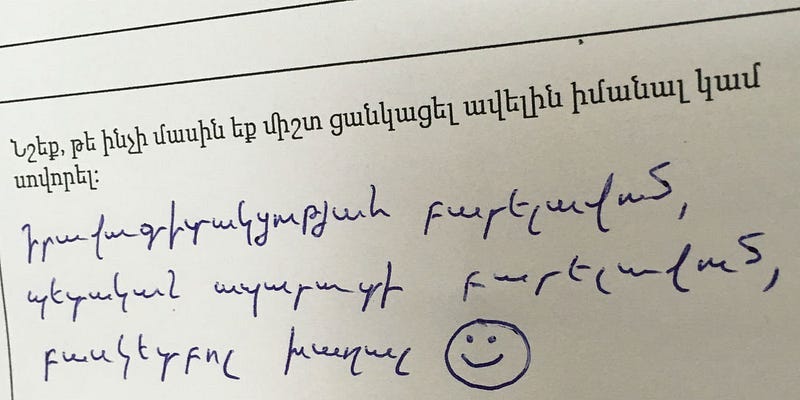 Նշեք, թե ինչի մասին եք միշտ ցանկացել ավելին իմանալ կամ
սովորել:
իրավագիտակցության բարելավում,
պետական ապարատի բարելավում,
բասկետբոլ խաղալ